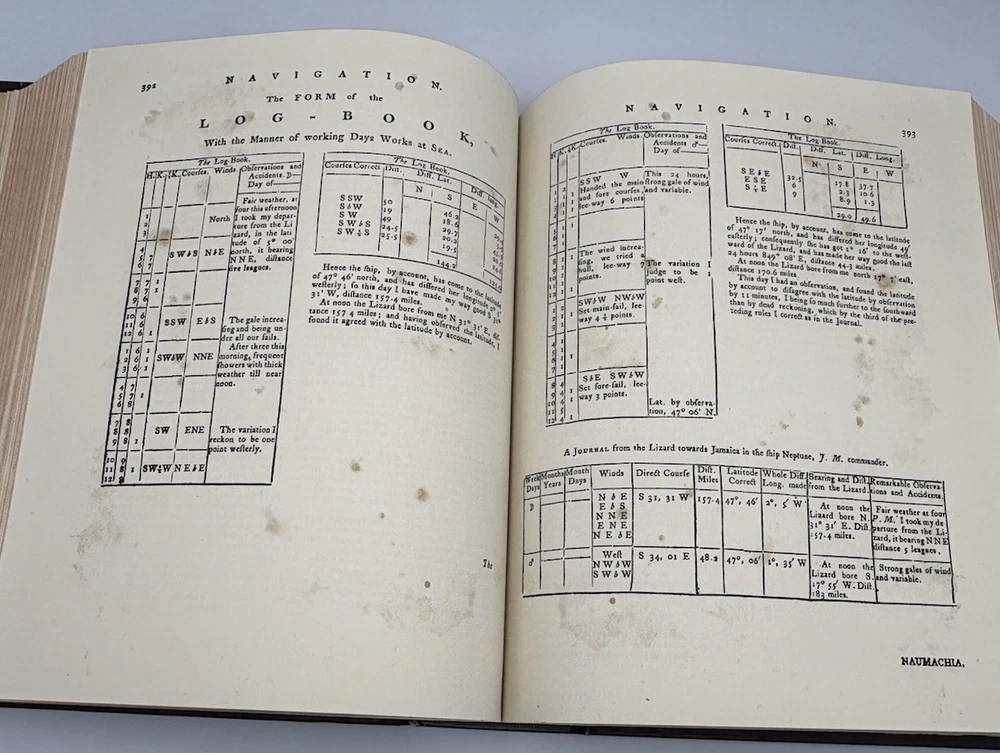 392
NAVIGATION.
The FORM of the
LOG-BOOK,
With the Manner of working Days Works at SEA.
The Log-Book.
H. K. ½K. Courses. Winds. Observations and
Accidents. D—
Day of—
Fair weather, at
four this afternoon
North I took my depar-
ture from the Li-
zard, in the lati-
tude of 5° 00'
SW b S N b E north, it bearing
NNE, distance
five leagues.
SSW E b S The gale increa-
sing and being un-
der all our sails.
After three this
SW b W NNE morning, frequent
showers with thick
weather till near
noon.
SW ENE The variation I
reckon to be one
point westerly.
SW ¼ W N E b E
The Log-Book.
Courses Correct. Dist. Diff. Lat. Diff. Long.
N S E W
SSW 50 46.2
S b W 19 18.6
SW 49
SW b S 24.5
SW ¾ S 25.5
144.2
Hence the ship, by account, has come to the latitude
of 47° 46' north, and has differed her longitude 2° 5'
westerly; so this day I have made my way good S 31°
31' W, distance 157.4 miles.
At noon the Lizard bore from me N 31° 31' E, dis-
tance 157.4 miles; and having observed the latitude, I
found it agreed with the latitude by account.
The
NAVIGATION.
393
The Log Book.
H. K. ½K. Courses. Winds. Observations and
Accidents ♂—
Day of—
SSW W This 24 hours,
Handed the main strong gale of wind
and fore courses, and variable.
lee-way 6 points
The wind increa-
sing, we tried a
hull, lee-way 7 The variation I
points. judge to be 1
point west.
SW b W NW b W
Set main-sail, lee-
way 4 ½ points.
S b E SW b W
Set fore-sail, lee-
way 3 points.
Lat. by observa-
tion, 47° 06' N.
The Log Book.
Courses Correct. Dist. Diff. Lat. Diff. Long.
N S E W
SE b E 32.5 17.8 37.7
ESE 6 2.3 10.6
S ¼ E 9 8.9 1.3
29.0 49.6
Hence the ship, by account, has come to the latitude
of 47° 17' north, and has differed her longitude 49'
easterly; consequently she has got 1° 16' to the west-
ward of the Lizard, and has made her way good the last
24 hours 849° 08' E, distance 44.3 miles.
At noon the Lizard bore from me north 17° 7' east,
distance 170.6 miles.
This day I had an observation, and found the latitude
by account to disagree with the latitude by observation
by 11 minutes, I being so much further to the southward
than by dead reckoning, which by the third of the pre-
ceding rules I correct as in the Journal.
A JOURNAL from the Lizard towards Jamaica in the ship Neptune, J. M. commander.
Week Days Months Years Month Days Winds Direct Course Dist. Miles Latitude Correct Whole Diff. Long. made Bearing and Dist. from the Lizard. Remarkable Observa-tions and Accidents.
N b E S 31, 31 W 157.4 47°, 46' 2°, 5' W At noon the Fair weather at four
E b S Lizard bore N. P. M. I took my de
NNE 31° 31' E. Dist. parture from the Li-
ENE 157.4 miles. zard, it bearing NNE
NE b E distance 5 leagues.
♂ West S 34, 01 E 48.2 47°, 06' 1°, 35' W At noon the Strong gales of wind
NW b W Lizard bore S. and variable.
SW b W 17° 55' W. Dist.
183 miles.
NAUMACHIA,